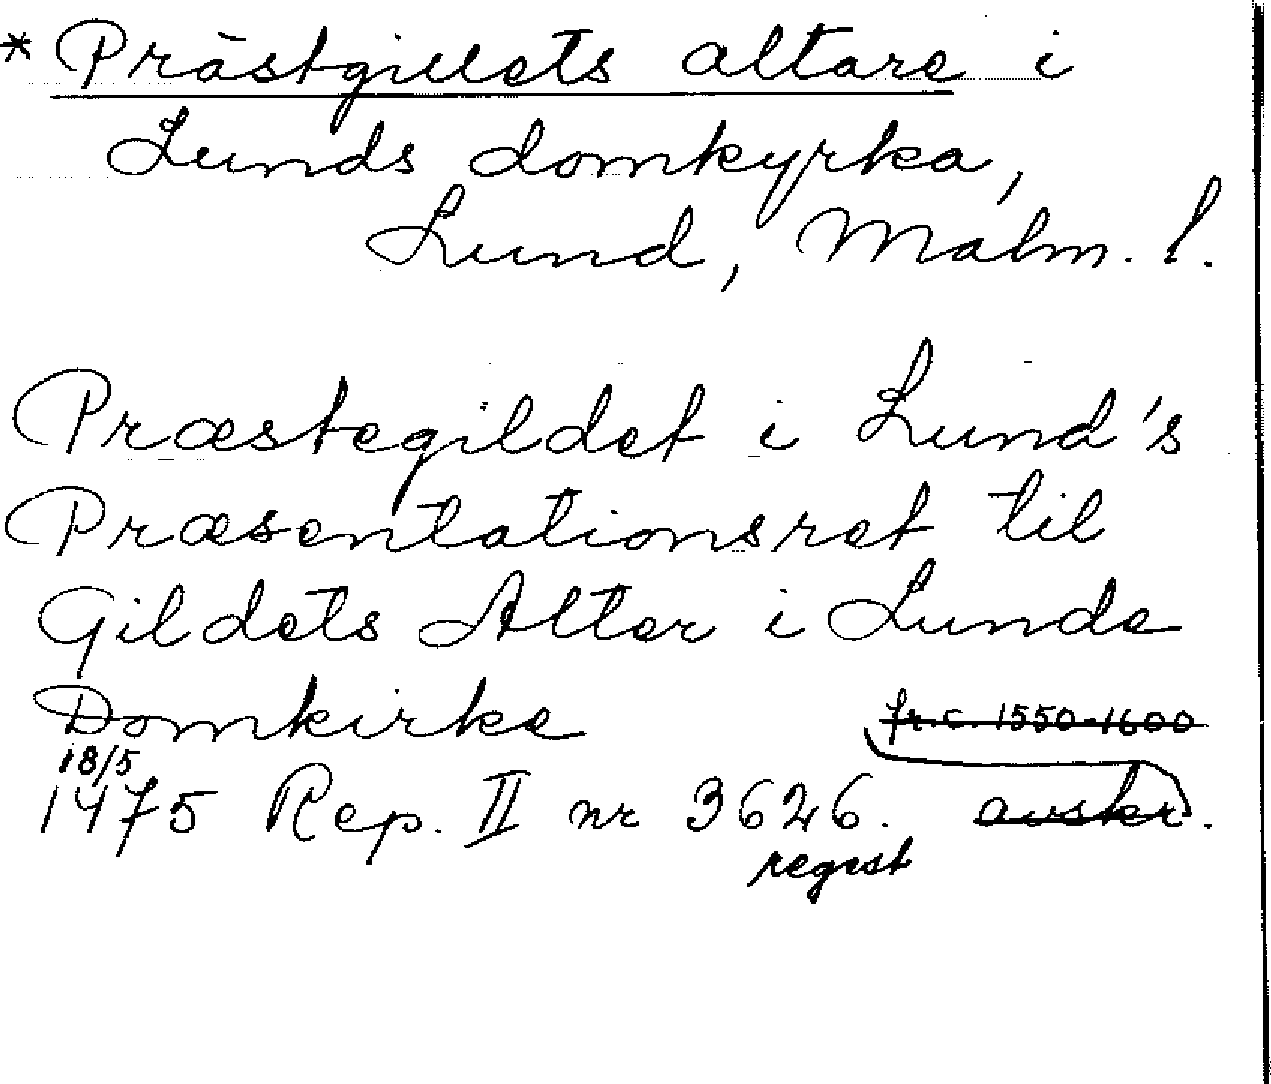 * Prästgillets altare i
Lunds domkyrka,
Lund, Malm. l.
Præstegildet i Lund's
Præsentationsret til
Gildets Alter i Lunde
Domkirke
fr. c. 1550-1600
18/5
1475 Rep. II nr 3626. avskr.
regest